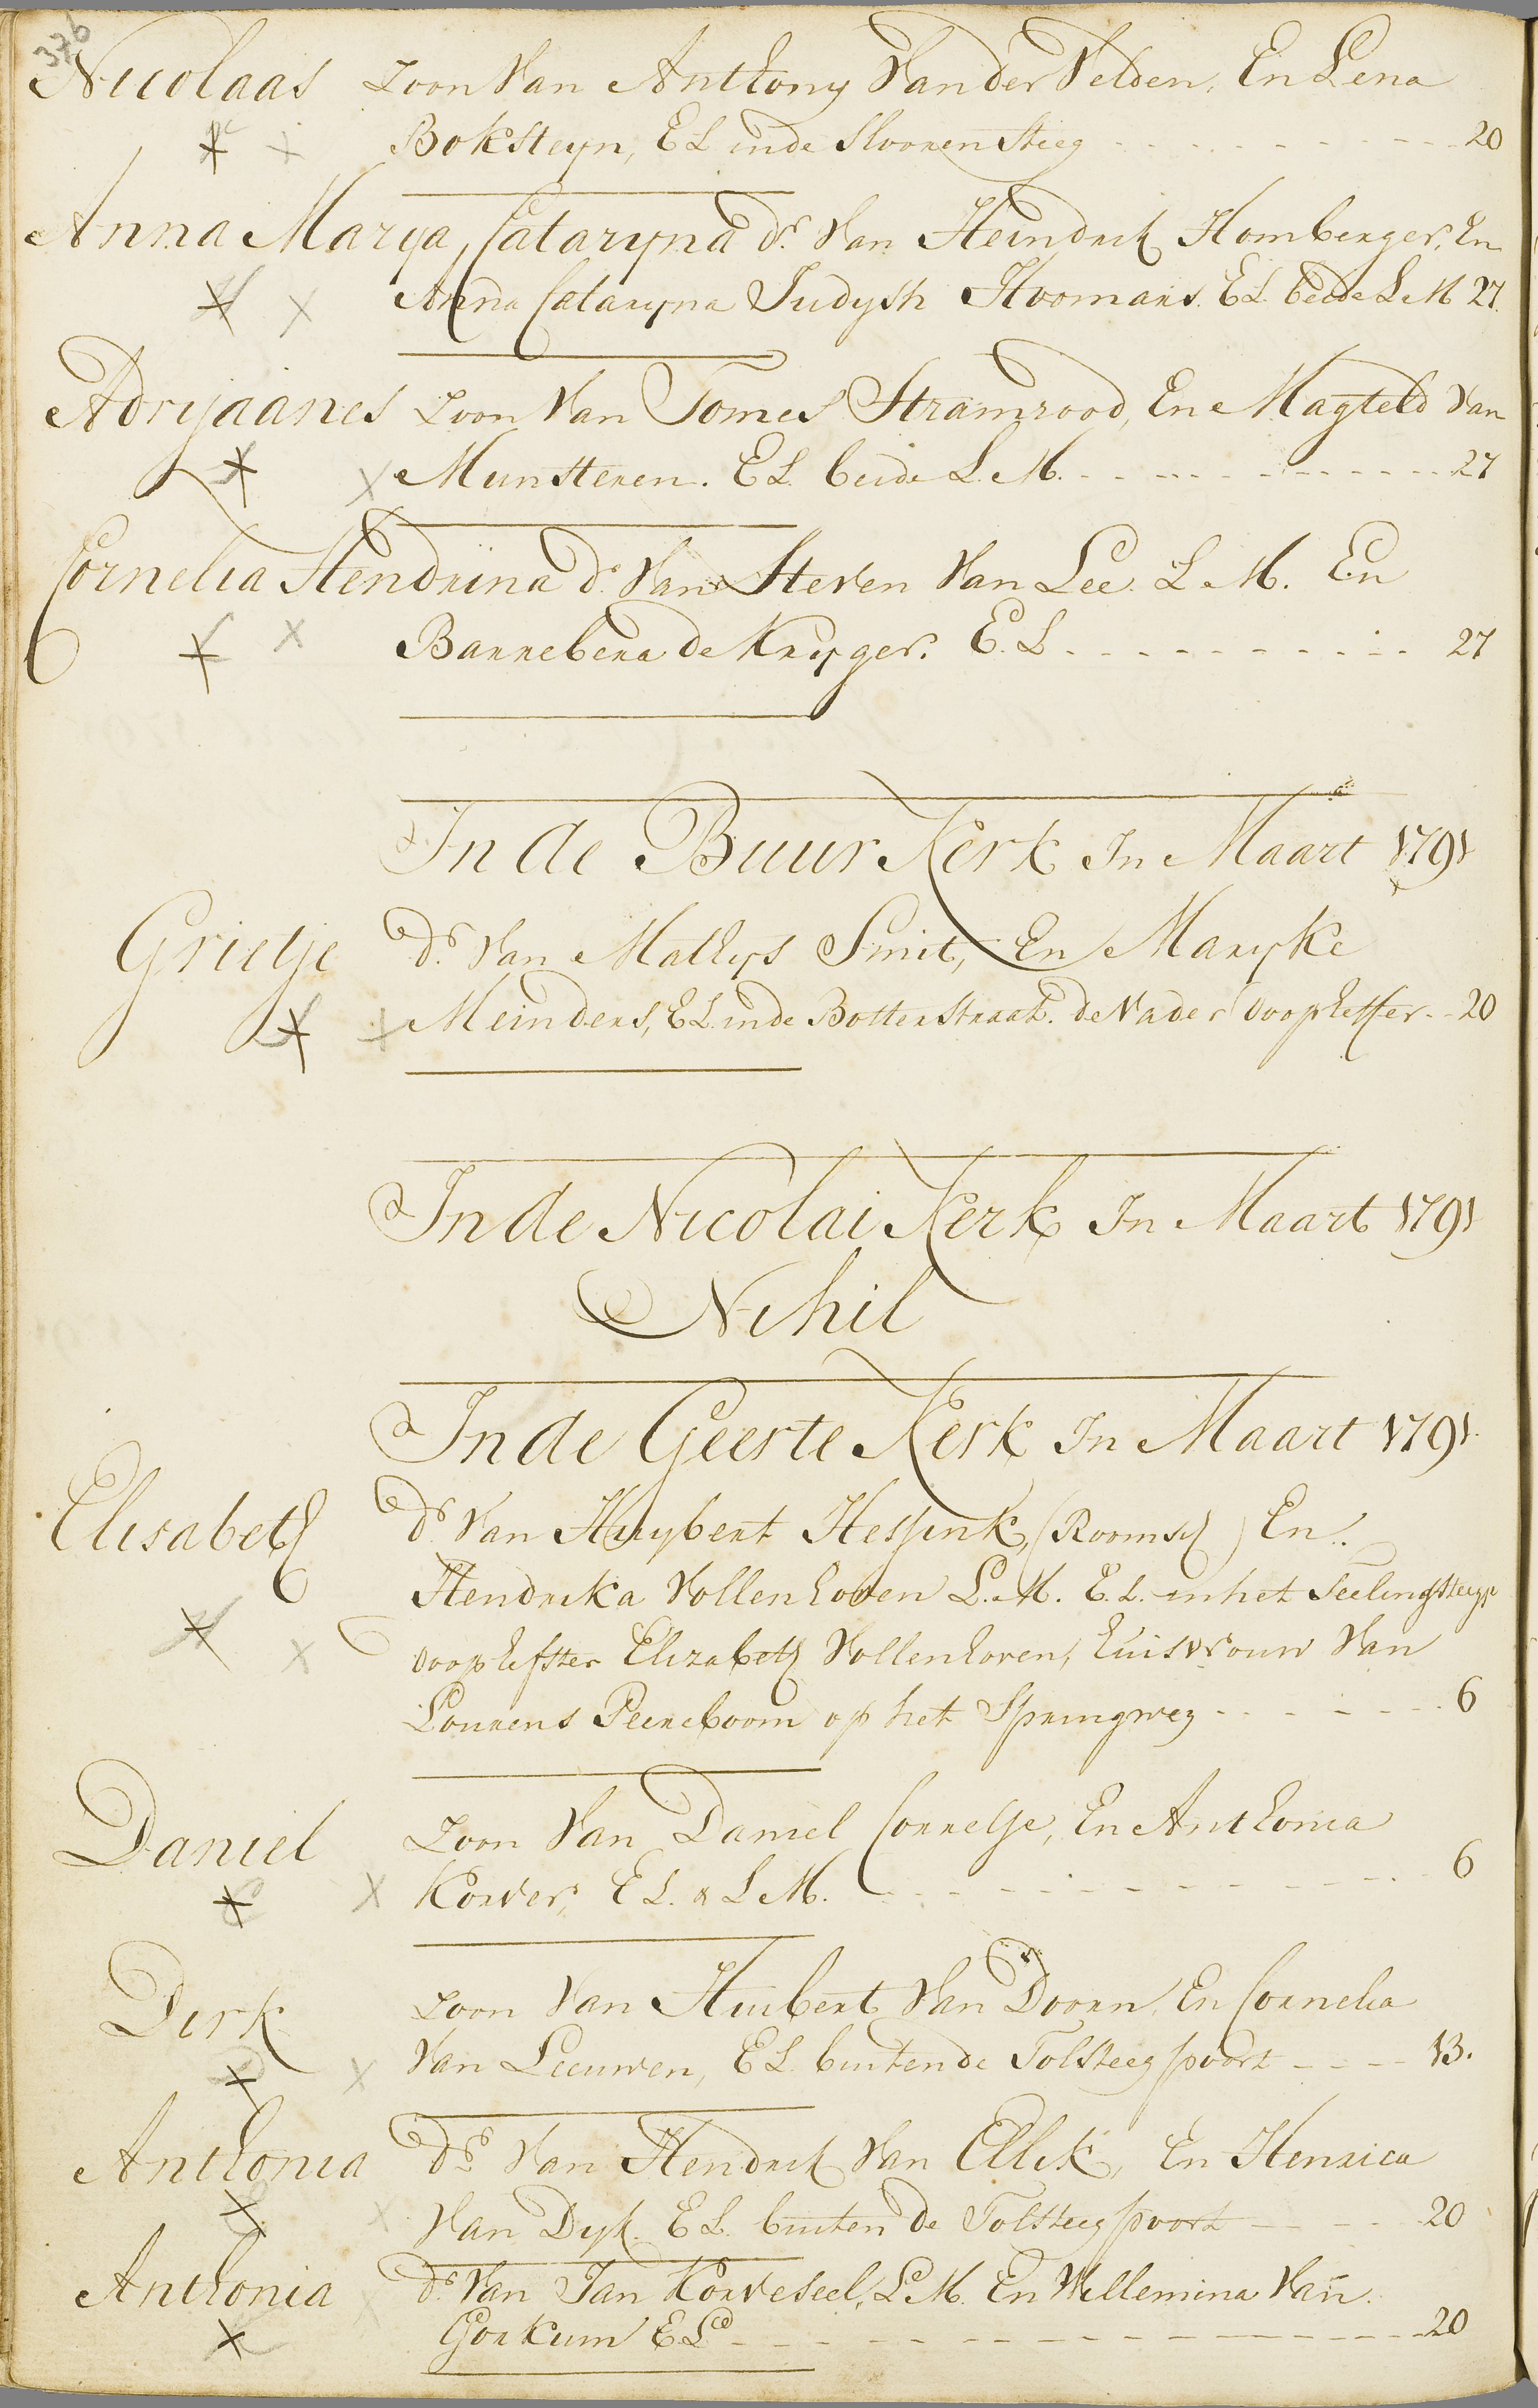 376
Nicolaas zoon Van Anthony Van der Velden, En Lena
Boksteyn, EL in de Slooren Steeg 20
Anna Marya, Cataryna dr. Van Heindrik Homberger, En
Anna Cataryna Judyth Hoomans. EL beide L M 27.
Adryaanes zoon Van Tomes Stramrood, En Magteld Van
Munsteren. EL. beide L. M. 27
Cornelia Hendrina dr. Van Steven Van Lee. L M. En
Bannebera de Kruyger. E. L. 27
In de Buur Kerk In Maart 1791
Grietje dr. Van Mathys Smit, En Maryke
Meinders, EL in de Botterstraat. de Vader doopheffer 20
In de Nicolai Kerk In Maart 1791
Nihil
In de Geerte Kerk In Maart 1791.
Elisabeth dr Van Huybert Hessink, (Roomsch) En
Hendrika Vollenhoven L. M. E. L. in het Teelingsteegje
doophefster Elizabeth Vollenhoven, huisvrouw Van
Lourens Peereboom op het Springweg 6
Daniel zoon Van Daniel Cornelje, En Anthonia
Korver, E L. & L M. 6
Dirk zoon Van Huibert Van Doorn, En Cornelia
Van Leeuwen, E L buiten de Tolsteegpoort 13.
Anthonia dr. Van Hendrik Van Ellik, En Henrica
Van Dyk. E L. buiten de Tolsteegpoort 20
Anthonia dr. Van Jan Korveseel, L M. En Willemina Van
Gorkum E L 20